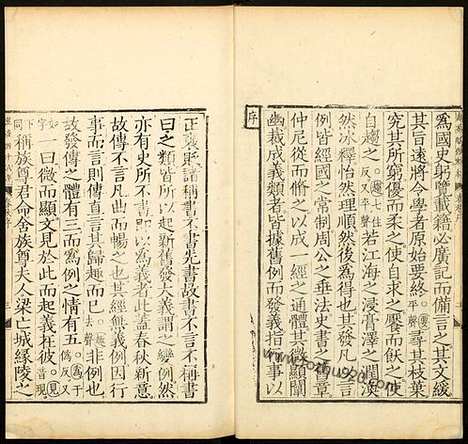 為國史躬覽載籍必廣記而備言之其文緩
其旨遠將令學者原始要終尋其枝葉
究其所窮優而柔之使自求之饜而飫之使
自趨之若江海之浸膏澤之潤渙
然冰釋怡然理順然後為得也其發凡以言
例皆經國之常制周公之垂法史書之舊章
仲尼從而脩之以成一經之通體其微顯闡
幽裁成義類者皆據舊例而發義指行事以
正褒貶諸稱書不書先書故書不言不稱書
曰之類皆所以起新舊發大義謂之變例然
亦有史所不書即以為義者此蓋春秋新意
故傳不言凡曲而暢之也其經無義例因行
事而言則傳直言其歸趣而已非例也
故發傳之體有三而為例之情有五
一曰微而顯文見於此而起義在彼
稱族尊君命舍族尊夫人梁亡城緣陵之